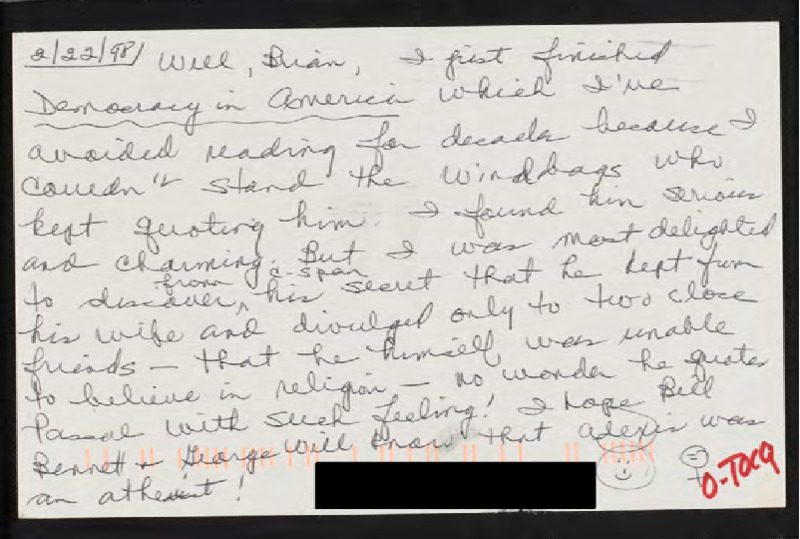 2/22/98/ Well, Brian, I just finished
Democracy in America which I've
avoided reading for decades because I
couldn't stand the windbags who
kept quoting him. I found him serious
and charming. But I was most delighted
from C-Span
to discover, his secret that he kept from
his wife and divulged only to two close
friends – that he himself was unable
to believe in religion – no wonder he quotes
Pascal with such feeling! I hope Bill
Bennett + George Will know that Alexis was
an atheist!
O-TOCQ